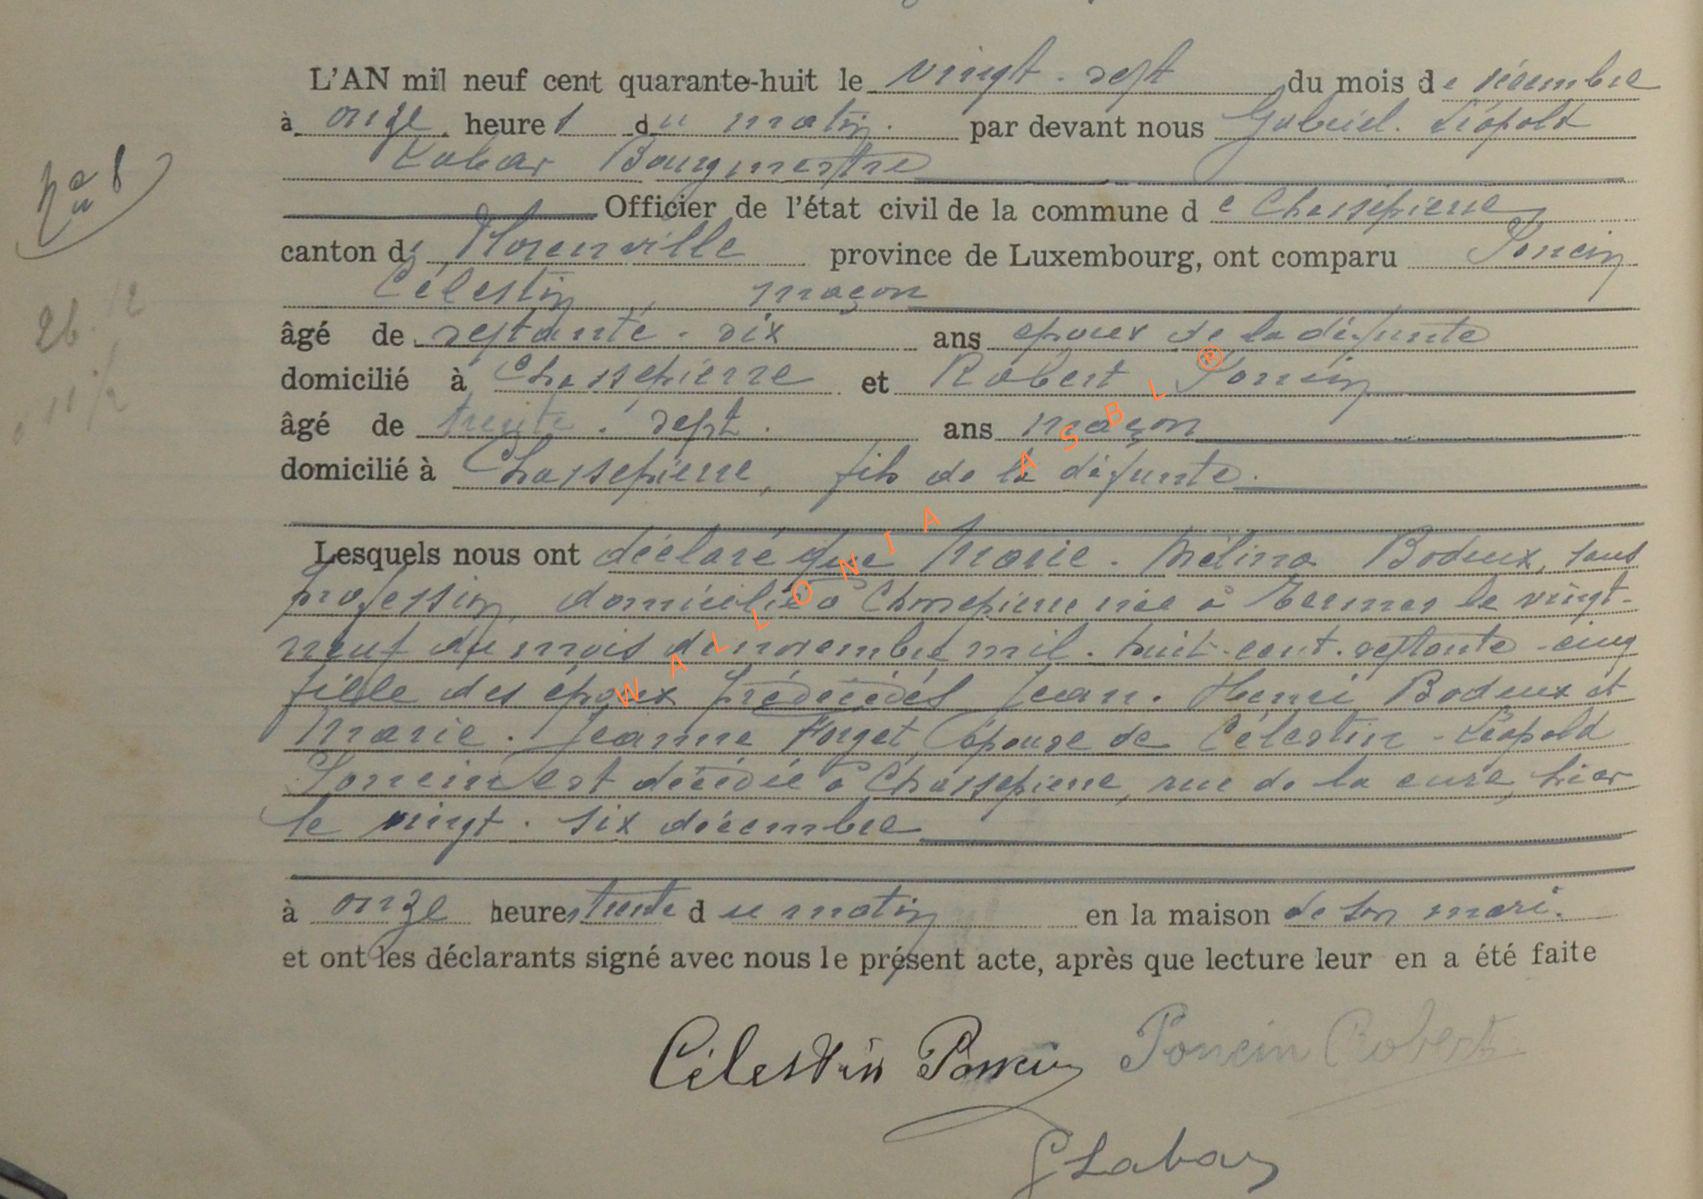 L'AN mil neuf cent quarante-huit le vingt-sept du mois de décembre
à onze heures du matin. par devant nous Gabriel-Léopold
Labar Bourgmestre
Officier de l'état civil de la commune de Chassepierre
canton de Florenville province de Luxembourg, ont comparu Poncin
Célestin, maçon
âgé de septante-six ans époux de la défunte
domicilié à Chassepierre et Robert Poncin
âgé de trente-sept. ans maçon
domicilié à Chassepierre, fils de la défunte.
Lesquels nous ont déclaré que Marie-Mélina Bodeux, sans
profession domiciliée à Chassepierre née à Termes le vingt-
neuf du mois de novembre mil-huit-cent-septante-cinq
fille des époux prédécédés Jean-Henri Bodeux et
Marie-Jeanne Forget, épouse de Célestin-Léopold
Poncin est décédée à Chassepierre, rue de la cure, hier
le vingt-six décembre
à onze heures trente du matin en la maison de son mari.
et ont les déclarants signé avec nous le présent acte, après que lecture leur en a été faite
Célestin Poncin Poncin Robert
G Labar
N° 8
26.12
11 1/2
WALLONIA ASBL ®